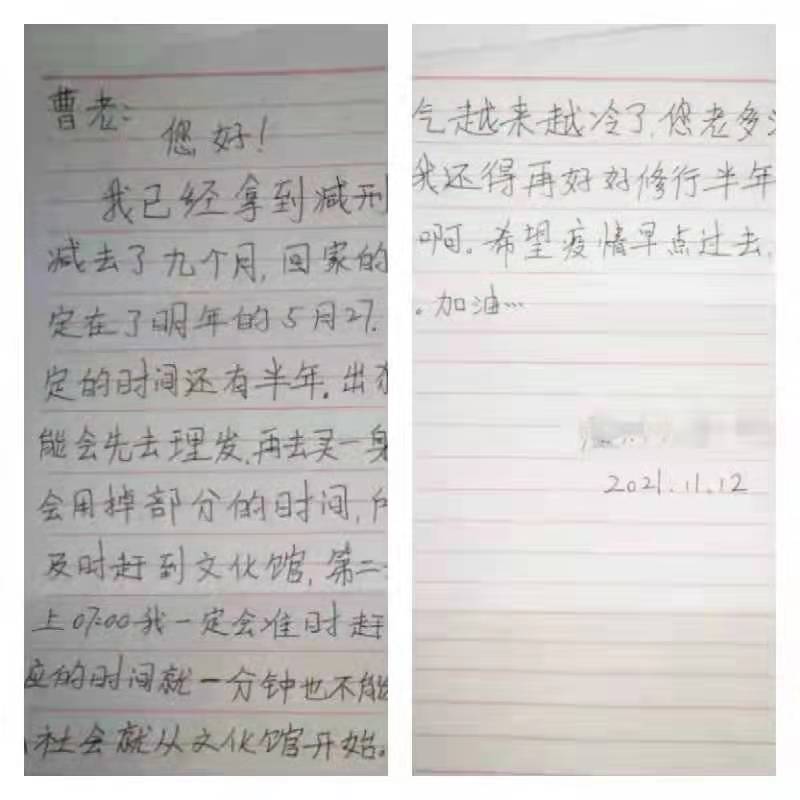 曹老：
您好！
我已经拿到减刑
减去了九个月，回家的
定在了明年的5月27.
定的时间还有半年。出
能会先去理发，再去买一身
会用掉部分的时间，
及时赶到文化馆，第二
上07:00我一定会准时赶
应的时间就一分钟也不能
社会就从文化馆开始。
气越来越冷了，您老多
我还得再好好修行半年
啊。希望疫情早点过去，
。加油…
2021.11.12